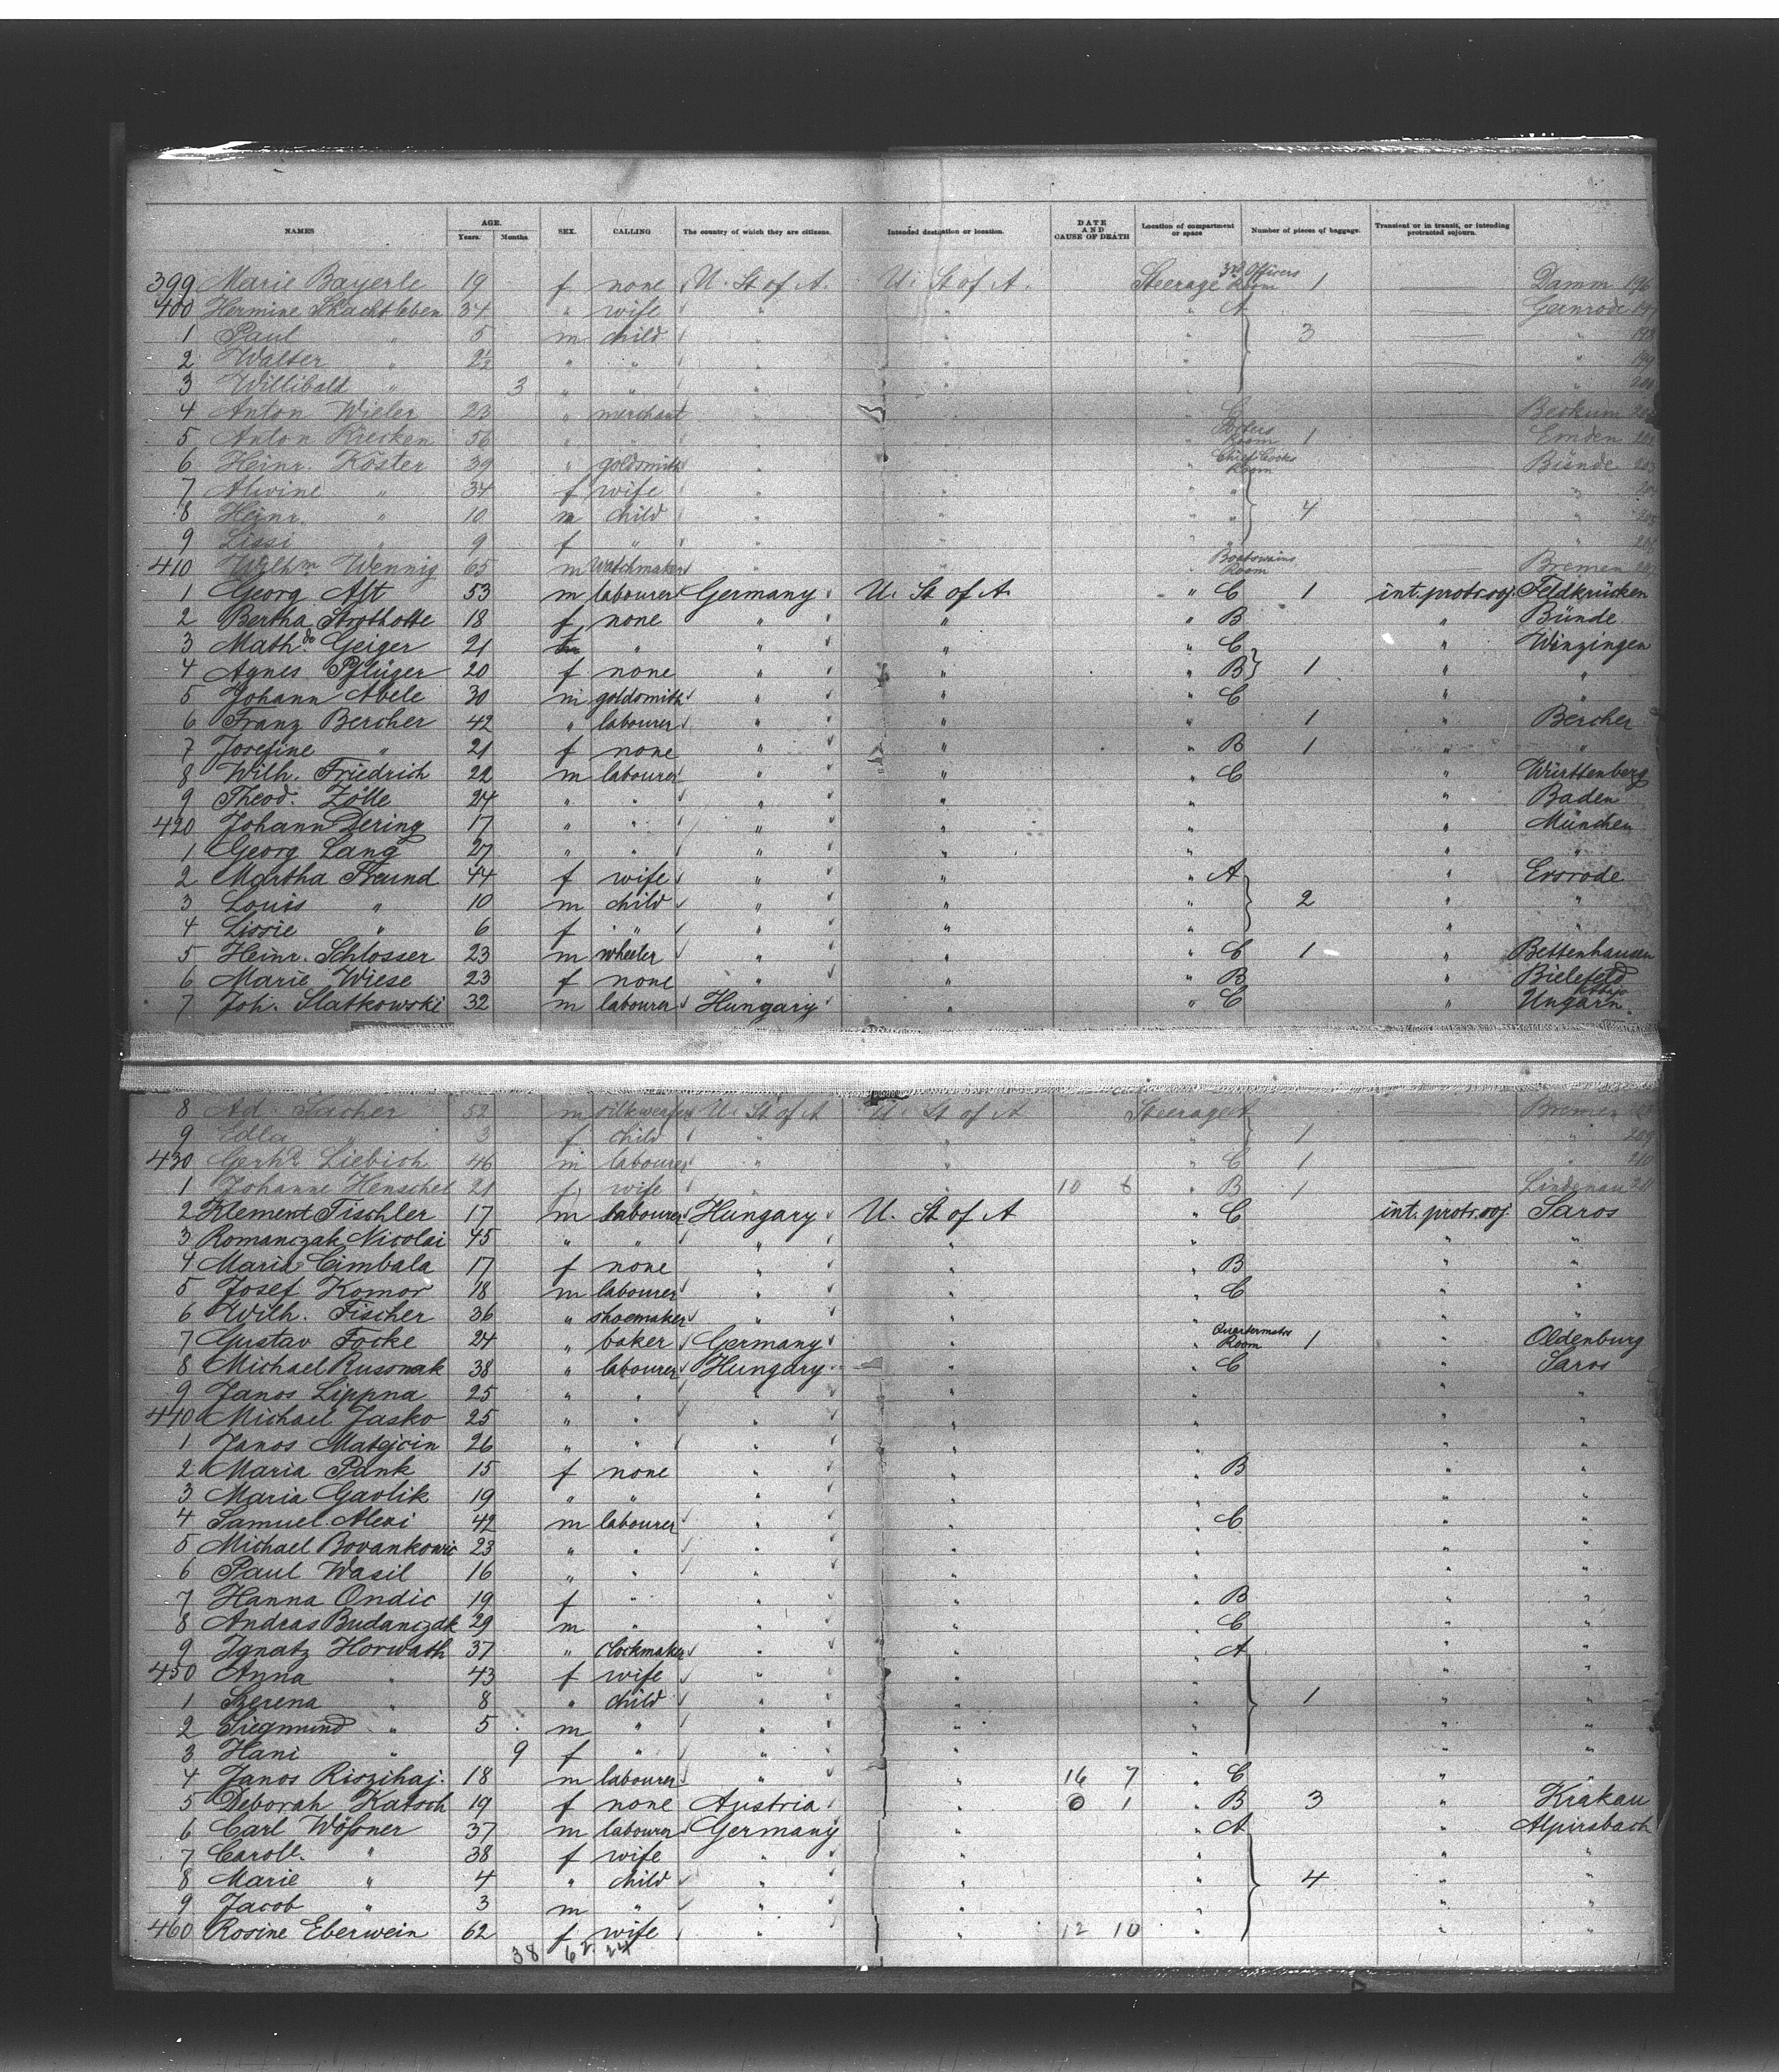 NAMES AGE. Years. Months. SEX. CALLING The country of which they are citizens. Intended destination or location. DATE AND CAUSE OF DEATH Location of compartment or space Number of pieces of baggage. Transient or in transit, or intending protracted sojourn.
399 Marie Bayerle 19 f none U. St of A. U. St of A. Steerage 3rd Officers Room 1 Damm 196
400 Hermine Skachtleben 34 " wife " " " A Gernrode 197
1 Paul " 5 m child " " " 3 " 198
2 Walter " 2½ " " " " " " 199
3 Willibald " 3 " " " " " " 200
4 Anton Wieler 23 " merchant " " " C Beckum
5 Anton Kiecken 56 " " " " " Room 1 Emden
6 Heinr. Köster 39 " goldsmith " " " Chief Cooks Room Bünde 203
7 Alwine " 34 f wife " " " " " 204
8 Heinr. " 10 m child " " " " 4 " 205
9 Lissi " 9 f " " " " " "
410 Wilhm Wennig 65 m watchmaker " " " Boatswains Room Bremen
1 Georg Alt 53 m labourer Germany U. St of A. " C 1 int. protr. soj. Feldkrücken
2 Bertha Strothotte 18 f none " " " B " Bünde
3 Mathde Geiger 21 " " " " C " Winzingen
4 Agnes Pflüger 20 f none " " " B 1 " "
5 Johann Abele 30 m goldsmith " " " C " "
6 Franz Bercher 42 " labourer " " " 1 " Bercher
7 Josefine " 21 f none " " " B 1 " "
8 Wilh. Friedrich 22 m labourer " " " C " Württenberg
9 Theod. Zölle 24 " " " " " " Baden
420 Johann Dering 17 " " " " " " München
1 Georg Lang 27 " " " " " " "
2 Martha Freund 44 f wife " " " A " Ersrode
3 Louis " 10 m child " " " 2 " "
4 Lissie " 6 f " " " " " "
5 Heinr. Schlosser 23 m wheeler " " " C 1 " Bettenhausen
6 Marie Wiese 23 f none " " " B " Bielefeld
7 Joh. Slatkowski 32 m labourer Hungary " " C " Ungarn.
8 Ad. Sacher 52 m silkweafer U. St of A U. St of A Steerage A Bremen
9 Edla " 3 f child " " " 1 " 209
430 Gerhd Liebich 46 m labourer " " " C 1 " 210
1 Johanne Henschel 21 f wife " " 10 8 " B 1 Lindenau 211
2 Klement Fischler 17 m labourer Hungary U. St of A " C int. protr. soj. Saros
3 Romanczak Nicolai 45 " " " " " " "
4 Maria Cimbala 17 f none " " " B " "
5 Josef Komor 18 m labourer " " " C " "
6 Wilh. Fischer 36 " shoemaker " " " " "
7 Gustav Focke 24 " baker Germany " " Quartermstrs Room 1 " Oldenburg
8 Michael Russnak 38 " labourer Hungary " " C " Saros
9 Janos Lippna 25 " " " " " " "
440 Michael Jasko 25 " " " " " " "
1 Janos Matejcin 26 " " " " " " "
2 Maria Pank 15 f none " " " B " "
3 Maria Gavlik 19 " " " " " " "
4 Samuel Alexi 42 m labourer " " " C " "
5 Michael Bovankowic 23 " " " " " " "
6 Paul Wasil 16 " " " " " " "
7 Hanna Ondic 19 f " " " " B " "
8 Andras Budanczak 29 m " " " " C " "
9 Ignatz Horwath 37 " clockmaker " " " A " "
450 Anna " 43 f wife " " " " "
1 Szerena " 8 " child " " " 1 " "
2 Siegmund " 5 m " " " " " "
3 Hani " 9 f " " " " " "
4 Janos Riszihaj. 18 m labourer " " 16 7 " C " "
5 Deborah Katsch 19 f none Austria " 6 1 " B 3 " Krakau
6 Carl Wößner 37 m labourer Germany " " A " Alpirsbach
7 Carole. " 38 f wife " " " " "
8 Marie " 4 " child " " " 4 " "
9 Jacob " 3 m " " " " " "
460 Rosine Eberwein 62 f wife " " 12 10 " " "
38 62 24